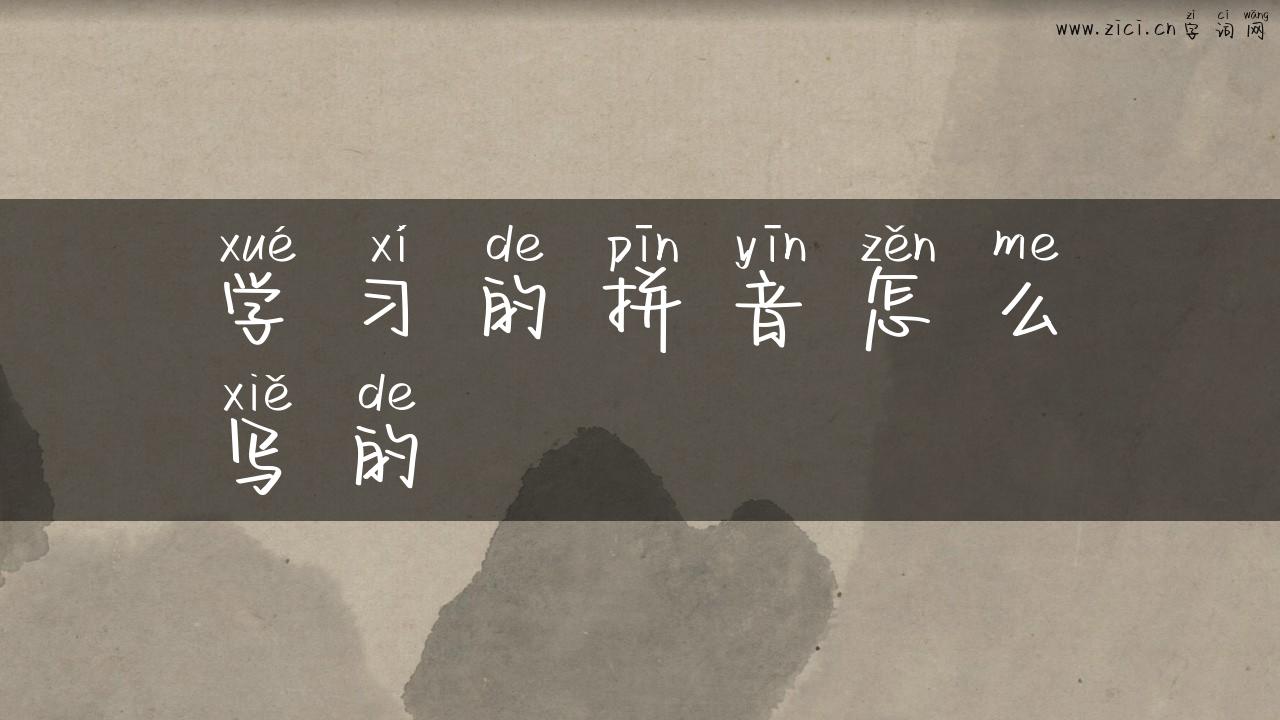 zì cí wǎng
www.zici.cn 字 词 网
xué xí de pīn yīn zěn me
学 习 的 拼 音 怎 么
xiě de
写 的